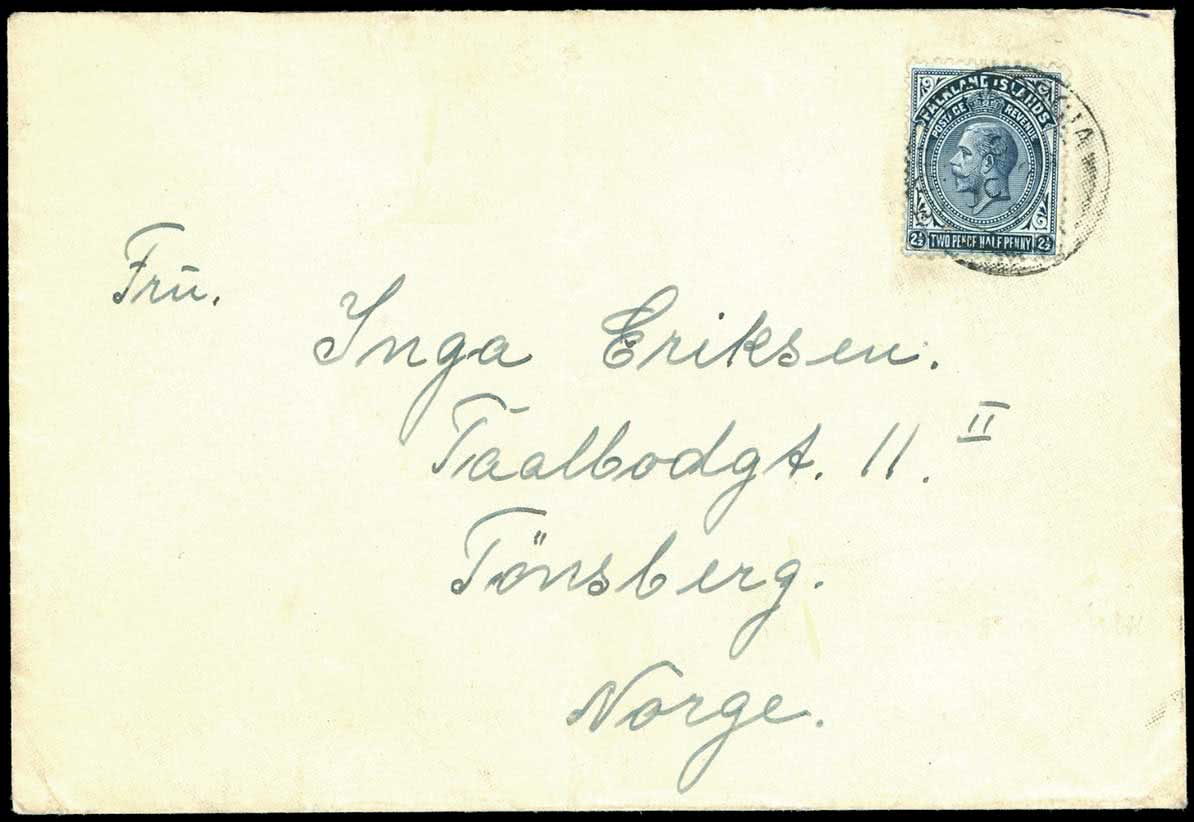 FALKLAND ISLANDS
POSTAGE REVENUE
2½ TWO PENCE HALF PENNY 2½
Frū.
Inga Eriksen.
Tāalbodgt. 11. II
Tönsberg.
Norge.